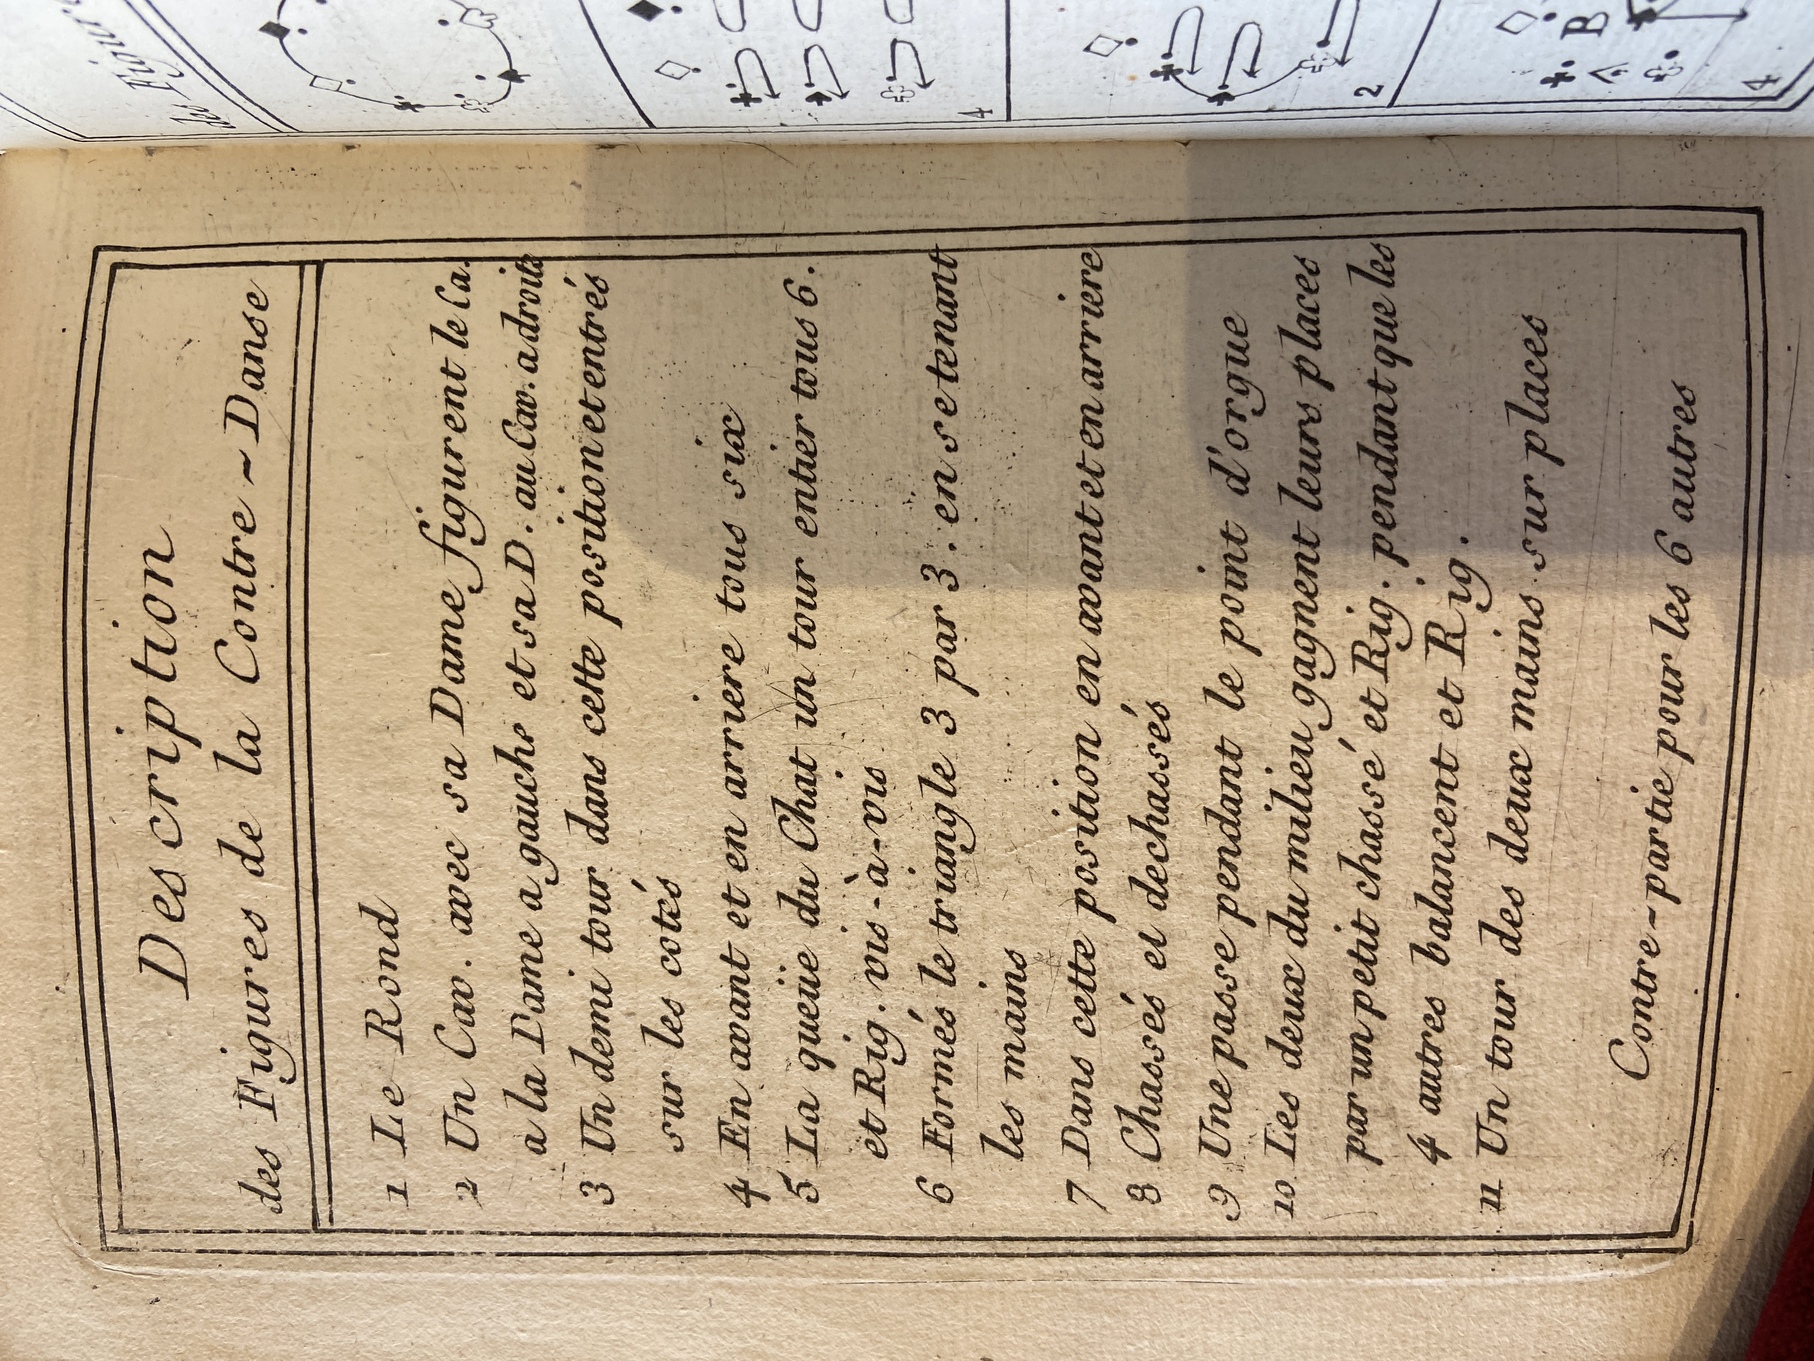 Description
des Figures de la Contre ~ Danse
1 Le Rond
2 Un Cav. avec sa Dame figurent le Ca.
a la Dame a gauche et sa D. au Cav. a droite
3 Un demi tour dans cette position et entrés
sur les cotés
4 En avant et en arriere tous six
5 La queüe du Chat un tour entier tous 6.
et Rig. vis-à-vis
6 Formés le triangle 3 par 3. en se tenant
les mains
7 Dans cette position en avant et en arriere
8 Chassés et dechassés
9 Une passe pendant le point d'orgue
10 Les deux du milieu gagnent leurs places
par un petit chassé et Rig. pendant que les
4 autres balancent et Rig.
11 Un tour des deux mains sur places
Contre-partie pour les 6 autres
des Figure
4
2
B
4